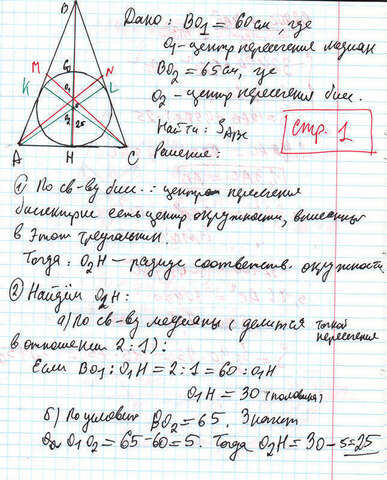 B
M
N
K
L
O₁
O₂
25
A
H
C
Дано: BO₁ = 60 см, где
O₁ - центр пересечения медиан
BO₂ = 65 см, где
O₂ - центр пересечения бисс.
Найти: S
Решение:
стр. 1
① По св-ву бисс.: центр пересечения
биссектрис есть центр окружности, вписанный
в этот треугольник.
Тогда: O₂H - радиус соответств. окружности
② Найдём O₂H:
а) По св-ву медианы (делится точкой пересечения
в отношении 2:1):
Если BO₁:O₁H = 2:1 = 60:O₁H
O₁H = 30 (половина)
б) По условию BO₂ = 65. Значит
O₁O₂ = 65-60=5. Тогда O₂H = 30-5=25